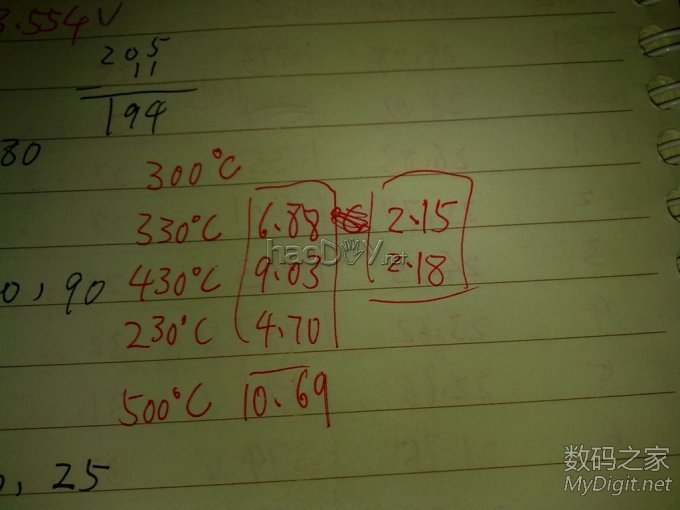 3.554V
205
- 11
194
80
300°C
330°C 6.88 2.15
haoDIY.net
0, 90 430°C 9.03 2.18
230°C 4.70
500°C 10.69
, 25
数码之家
MyDigit.net